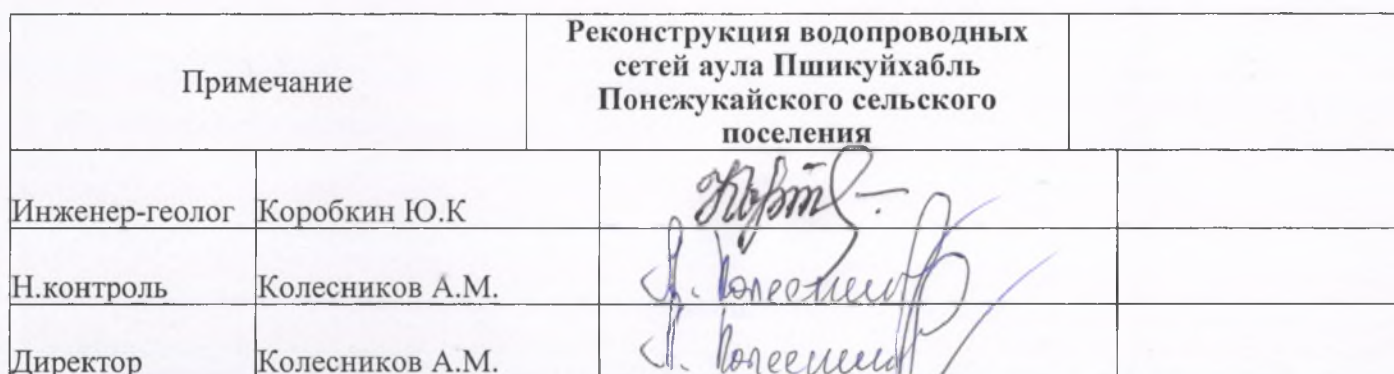 Примечание
Реконструкция водопроводных
сетей аула Пшикуйхабль
Понежукайского сельского
поселения
Инженер-геолог Коробкин Ю.К
Н.контроль Колесников А.М.
Директор Колесников А.М.